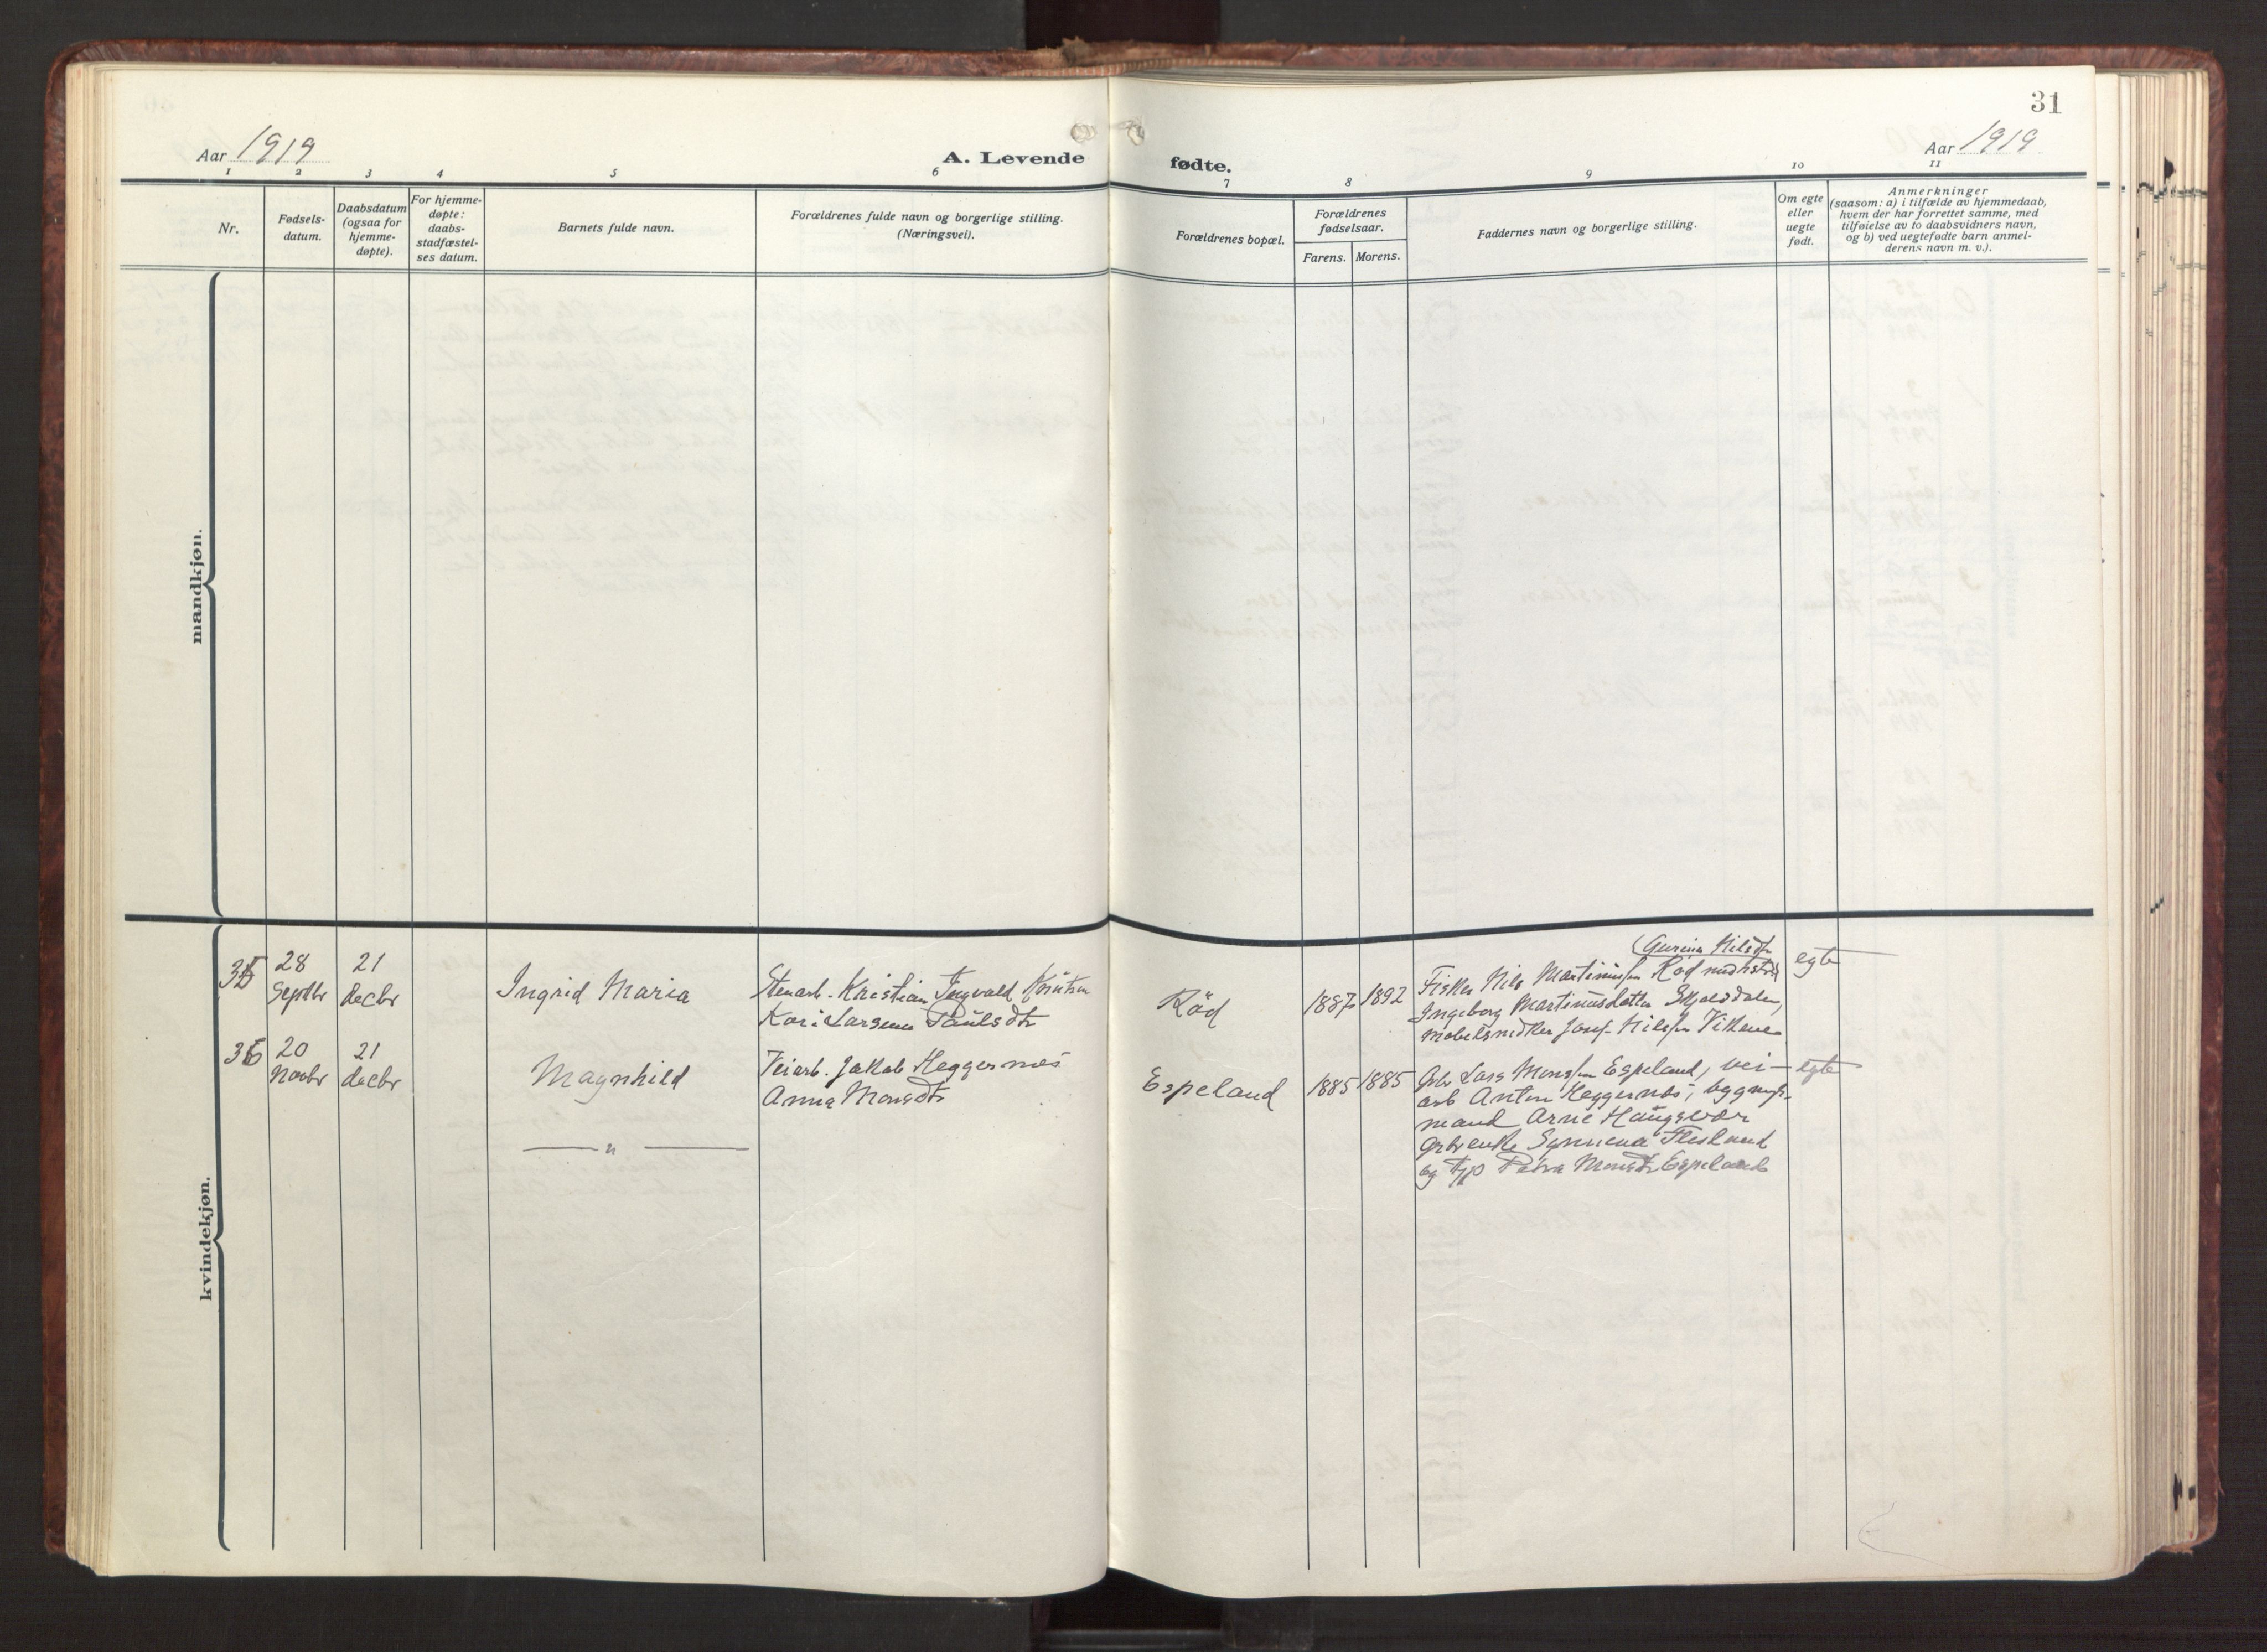 31
Aar 1919
A. Levende
fødte.
Aar 1919
1 2 3 4 5 6 7 8 9 10 11
Nr.
Fødsels-
datum.
Daabsdatum
(ogsaa for
hjemme-
døpte).
For hjemme-
døpte:
daabs-
stadfæstel-
ses datum.
Barnets fulde navn.
Forældrenes fulde navn og borgerlige stilling.
(Næringsvei).
Forældrenes bopæl.
Forældrenes
fødselsaar.
Farens. Morens.
Faddernes navn og borgerlige stilling.
Om egte
eller
uegte
født.
Anmerkninger
(saasom: a) i tilfælde av hjemmedaab,
hvem der har forrettet samme, med
tilføielse av to daabsvidners navn,
og b) ved uegtefødte barn anmel-
derens navn m. v.).
mandkjøn.
kvindekjøn.
35
28
Septbr
21
decbr
Ingrid Maria
Stenarb. Kristian Ingvald Knutsen
Kari Larsine Paulsdtr
Röd
1887 1892
(Gurina Nilsdtr
Fisker Nils Martinussen Röd
Ingeborg Martinusdatter Skjelsdalen,
møbelsnedker Josef Nilssen Vikene
egte
36
20
Novbr
21
decbr
Magnhild
Veiarb. Jakob Heggernes
Anna Monsdtr
Espeland
1885 1885
Gbr Lars Monssen Espeland, vei-
arb Anton Heggernes, bygnings-
mand Arne Haugsvær
gbrenke Synneva Flesland
og Petra Monsdtr Espeland
egte
— " —